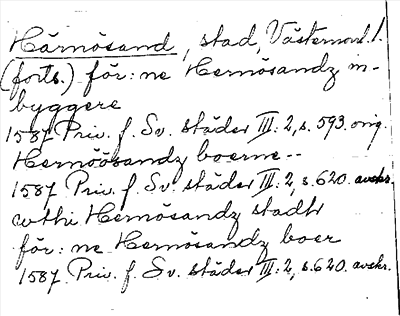 Härnösand, stad, Västernorrl. l.
(forts.) för: ne Hernösandz in-
byggere
1587 Priv. f. Sv. städer III: 2, s. 593. orig.
Hernöösandz boerne --
1587 Priv. f. Sv. städer III: 2, s. 620. avskr.
wthi Hernösandz stadh
för: ne Hernösandz boer
1587 Priv. f. Sv. städer III: 2, s. 620. avskr.